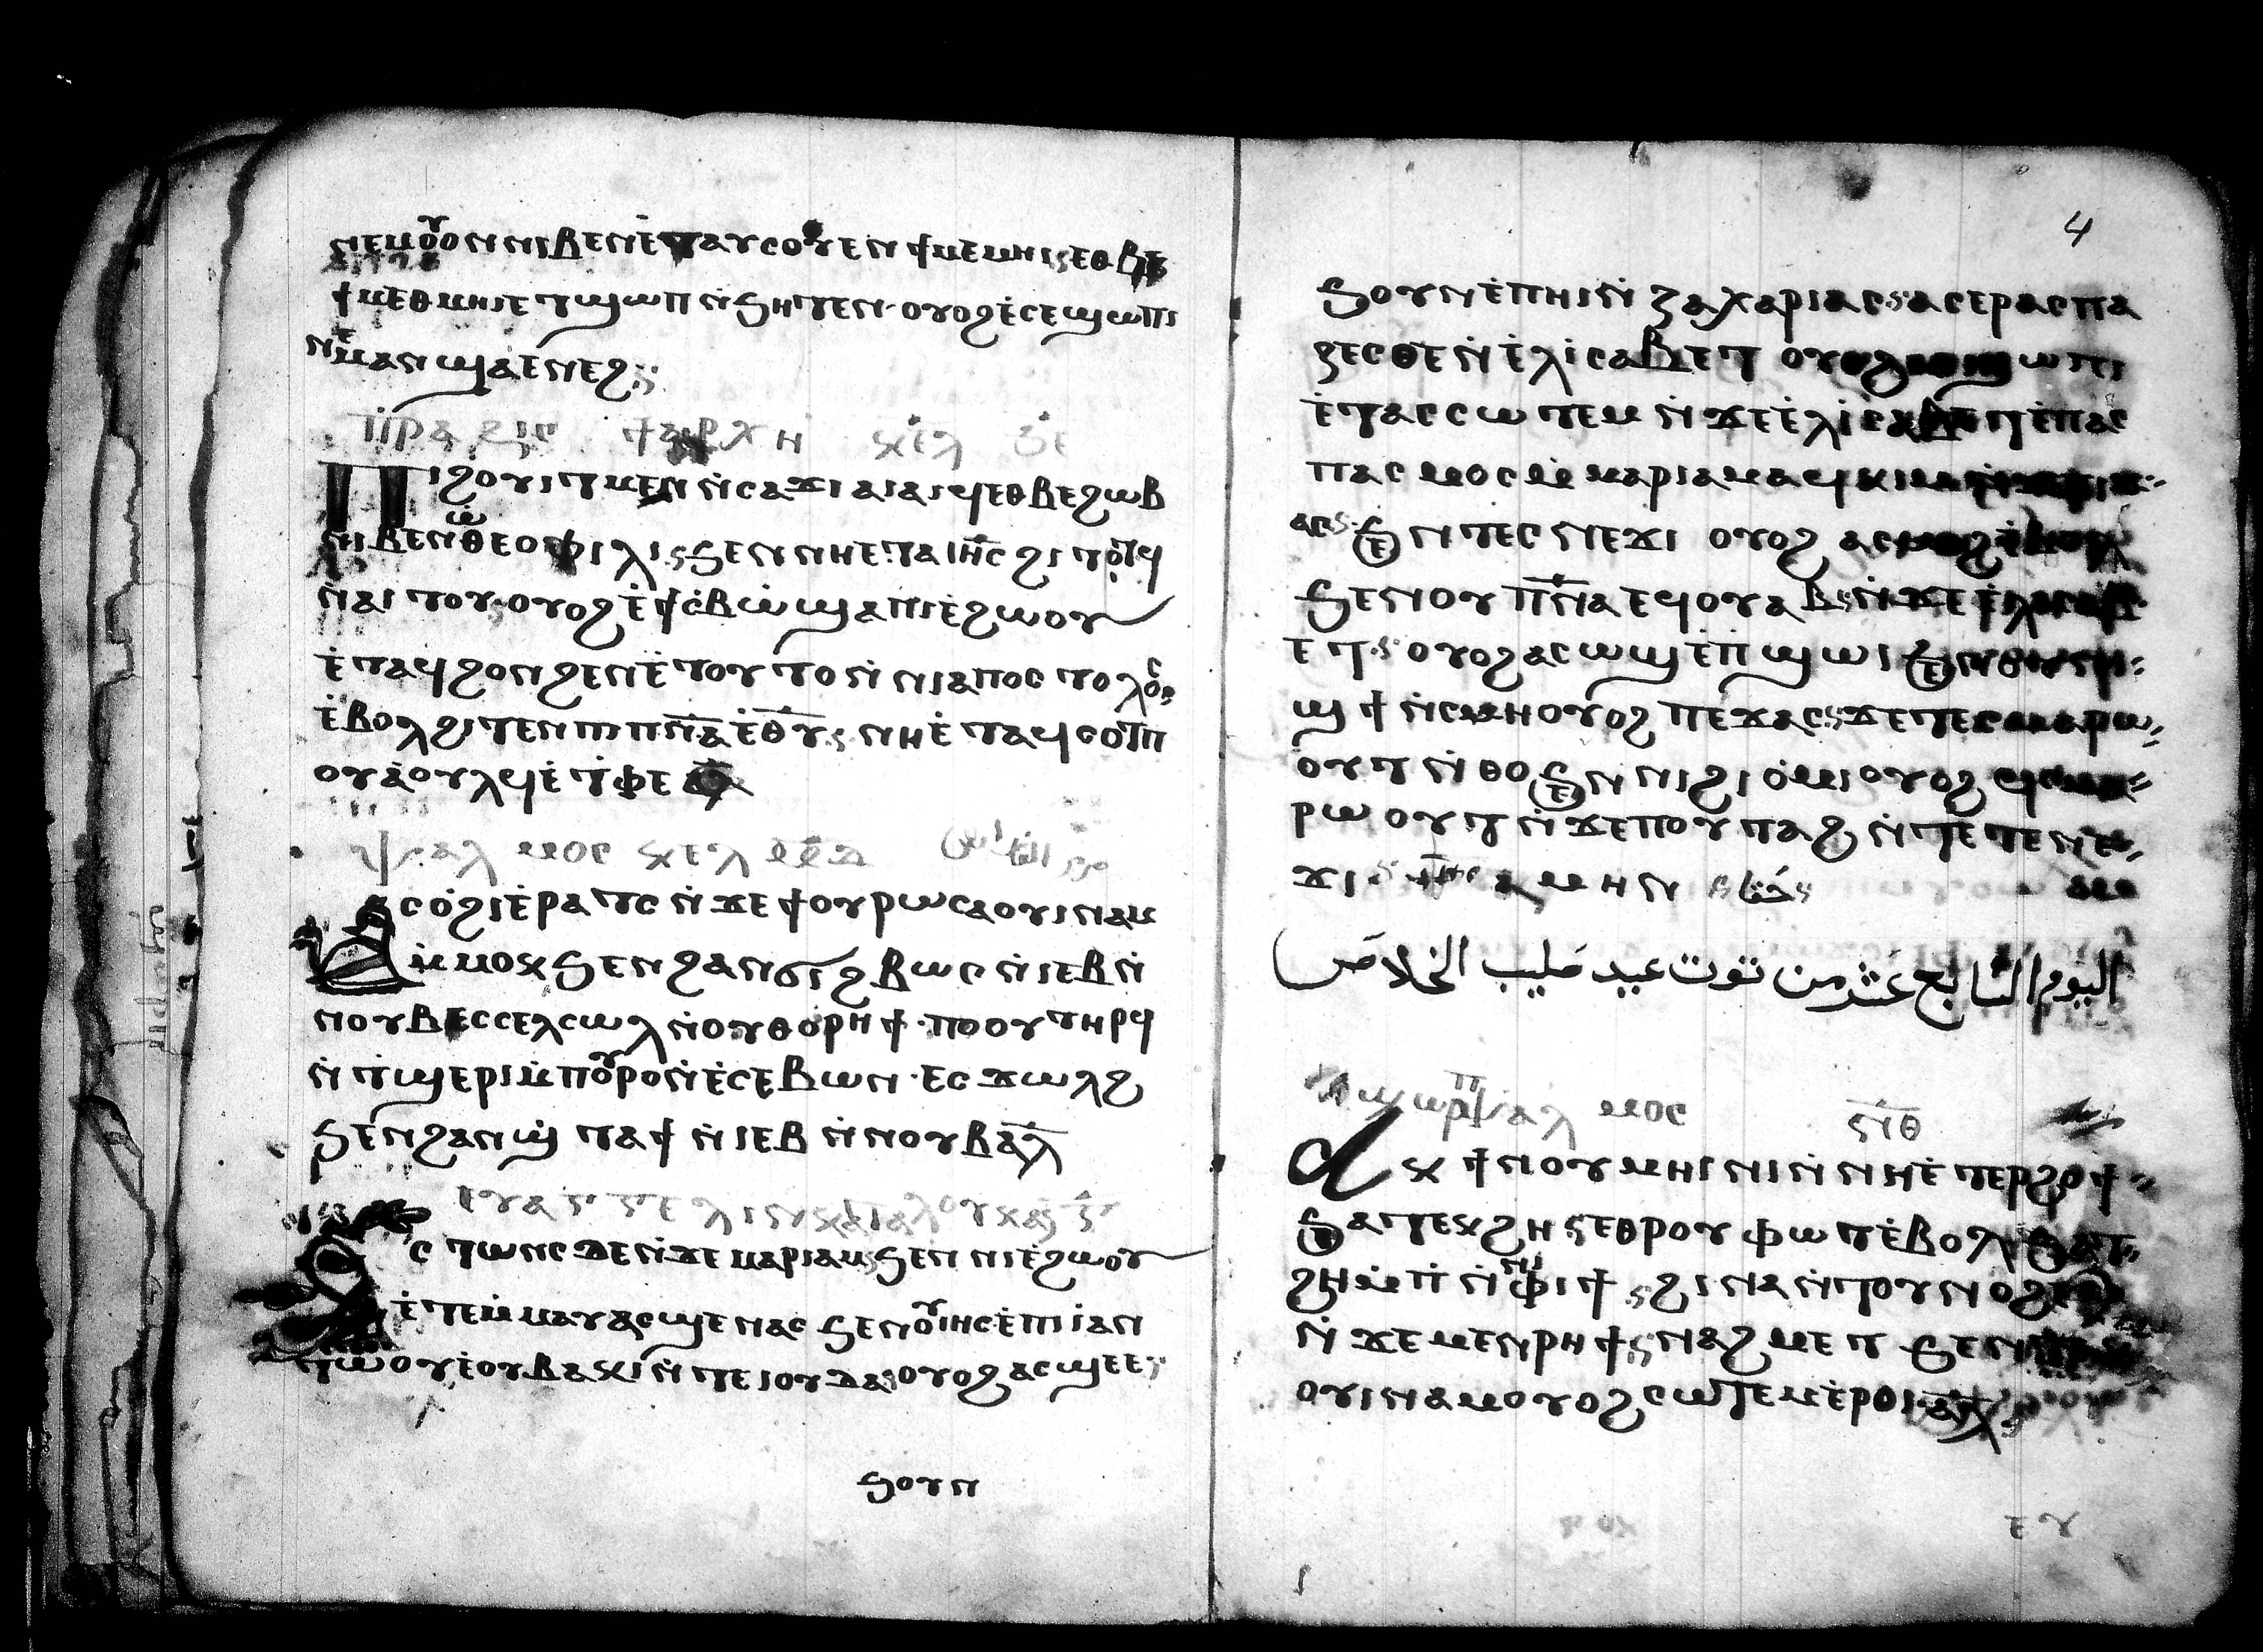 ⲛⲉⲙⲟⲩⲟⲛ ⲛⲓⲃⲉⲛ ⲉⲧⲁⲩⲥⲟⲩⲉⲛ ϯⲙⲉⲙⲏⲓ ⲉⲑⲃⲉ
ϯⲙⲉⲑⲙⲏⲓ ⲉⲧϣⲱⲡ ⲛ̇ϧⲏⲧⲉⲛ ⲟⲩⲟϩ ⲉ̇ⲥⲉϣⲱⲡⲓ
ⲛⲉⲙⲁⲛ ϣⲁⲉⲛⲉϩ
ⲡⲣⲁⲝⲓⲥ ϯⲁⲣⲭⲏ ⲕⲉⲗ
Ⲡⲓϩⲟⲩⲓⲧ ⲙⲉⲛ ⲛ̇ⲥⲁϫⲓ ⲁⲓⲁⲓϥ ⲉⲑⲃⲉ ϩⲱⲃ
ⲛⲓⲃⲉⲛ ⲱ̇ ⲑⲉⲟⲫⲓⲗⲓ ϧⲉⲛ ⲛⲏⲉⲧⲁ ⲓⲏ̅ⲥ ϩⲓⲧⲟⲧϥ
ⲛ̇ⲁⲓⲧⲟⲩ ⲟⲩⲟϩ ⲉ̇ϯⲥ̇ⲃⲱ̇ ϣⲁⲡⲓⲉ̇ϩⲱⲟⲩ
ⲉ̇ⲧⲁϥϩⲟⲛϩⲉⲛ ⲉ̇ⲧⲟⲩⲧⲟⲛ̇ ⲛⲓⲁⲡⲟⲥⲧⲟⲗⲟⲥ
ⲉ̇ⲃⲟⲗϩⲓⲧⲉⲛ ⲡⲓⲡⲛ̅ⲁ ⲉ̇ⲑⲩ ⲛⲏⲉ̇ⲧⲁϥⲥⲟⲧⲡ
ⲟⲩⲁ̇ⲟⲩⲗϥ ⲉ̇ⲧⲫⲉ
ⲯⲁⲗⲙⲟⲥ ⲕⲉⲗ ⲙ̇ⲇ
ⲥⲟ̇ϩⲓ ⲉ̇ⲣⲁⲧⲥ ⲛ̇ϫⲉ ϯⲟⲩⲣⲱ ⲥⲁⲟⲩⲓⲛⲁⲙ
ⲙ̇ⲙⲟⲕ ϧⲉⲛ ϩⲁⲛϭⲓϩⲃⲱⲥ ⲛ̇ⲓⲉⲃ ⲛ̇
ⲛⲟⲩⲃ ⲉⲥⲥⲉⲗⲥⲱⲗ ⲛ̇ⲟⲩⲑⲟⲣⲏϯ ⲡⲱⲟⲩ ⲧⲏⲣϥ
ⲛ̇ⲧϣⲉⲣⲓ ⲙ̇ⲡⲟⲩⲣⲟ ⲛ̇ⲉ̇ⲥⲉⲃⲱⲛ ⲉⲥϫⲱⲗϩ
ϧⲉⲛ ϩⲁⲛϣ̇ⲧⲁϯ ⲛ̇ⲓⲉⲃ ⲛ̇ⲛⲟⲩⲃ ⲁⲗ
ⲉⲩⲁⲅⲅⲉⲗⲓⲟⲛ ⲕⲁⲧⲁ ⲗⲟⲩⲕⲁⲥ
Ⲁⲥⲧⲱⲛⲥ ⲇⲉ ⲛ̇ϫⲉ ⲙⲁⲣⲓⲁⲙ ϧⲉⲛ ⲛⲓⲉ̇ϩⲱⲟⲩ
ⲉ̇ⲧⲉⲙ̇ⲙⲁⲩ ⲁⲥϣⲉⲛⲁⲥ ϧⲉⲛ ⲟⲩⲓⲏⲥ ⲉ̇ⲡⲓⲁⲛ
ⲧⲱⲟⲩ ⲉ̇ⲟⲩⲃⲁⲕⲓ ⲛ̇ⲧⲉ ⲓⲟⲩⲇⲁ ⲟⲩⲟϩ ⲁⲥϣⲉ ⲉ
ϧⲟⲩⲛ
4
ϧⲟⲩⲛ ⲉ̇ⲡⲏⲓ ⲛ̇ⲍⲁⲭⲁⲣⲓⲁⲥ ⲁⲥⲉⲣⲁⲥⲡⲁ
ⲍⲉⲥⲑⲉ ⲛ̇ⲉ̇ⲗⲓⲥⲁⲃⲉⲧ ⲟⲩⲟϩ ⲁⲥϣⲱⲡⲓ
ⲉ̇ⲧⲁⲥⲥⲱⲧⲉⲙ ⲛ̇ϫⲉ ⲉ̇ⲗⲓⲥⲁⲃⲉⲧ ⲉ̇ⲡⲁⲥ
ⲡⲁⲥⲙⲟⲥ ⲙ̇ⲙⲁⲣⲓⲁⲙ ⲁϥⲕⲓⲙ
ⲁⲥ ϧⲉⲛ ⲧⲉⲥⲛⲉϫⲓ ⲟⲩⲟϩ ⲁⲥⲙⲟϩ ⲉ̇ⲃⲟⲗ
ϧⲉⲛ ⲟⲩⲡⲛ̅ⲁ ⲉϥⲟⲩⲁⲃ ⲛ̇ϫⲉ ⲉ̇ⲗⲓⲥⲁⲃ
ⲉⲧ ⲟⲩⲟϩ ⲁⲥⲱϣ ⲉ̇ⲡϣⲱⲓ ϧⲉⲛ ⲟⲩⲛⲓ
ϣϯ ⲛ̇ⲥⲙⲏ ⲟⲩⲟϩ ⲡⲉϫⲁⲥ ϫⲉ ⲧⲉⲥⲙⲁⲣⲱ
ⲟⲩⲧ ⲛ̇ⲑⲟ ϧⲉⲛ ⲛⲓϩⲓⲟ̇ⲙⲓ ⲟⲩⲟϩ ϥⲥⲙⲁ
ⲣⲱⲟⲩⲧ ⲛ̇ϫⲉ ⲡⲟⲩⲧⲁϩ ⲛ̇ⲧⲉ ⲧⲉⲛⲉ
ϫⲓ ⲁⲙⲏⲛ
اليوم السابع عشر من توت عيد صليب الخلاص
ⲯⲁⲗⲙⲟⲥ ⲛ̅ⲑ
Ⲁⲕϯ ⲛⲟⲩⲙⲏⲓⲛⲓ ⲛ̇ⲛⲏⲉ̇ⲧⲉⲣϩⲟϯ
ϧⲁⲧⲉⲕϩⲏ ⲉⲑⲣⲟⲩⲫⲱⲧ ⲉ̇ⲃⲟⲗ ϧⲁⲧ
ϩⲏ ⲙ̇ⲡⲓ ⲛ̇ⲛⲓⲫⲓϯ ϩⲓⲛⲁ ⲛ̇ⲧⲟⲩⲛⲟϩⲉⲙ
ⲛ̇ϫⲉ ⲙⲉⲛⲣⲏϯ ⲛⲁϩⲙⲉⲧ ϧⲉⲛ
ⲟⲩⲓⲛⲁⲙ ⲟⲩⲟϩ ⲥⲱⲧⲉⲙ ⲉ̇ⲣⲟⲓ ⲁⲗ
ⲉⲩ